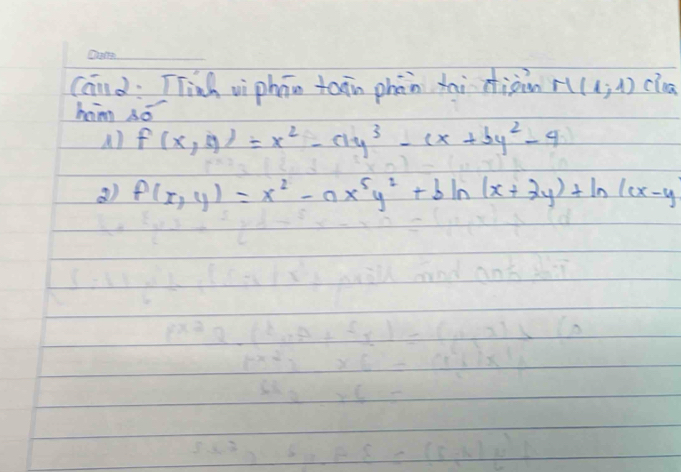 Date
Câu 2: Tính vi phân toàn phần tại điểm M(1;1) của
hàm số
1) f(x, y) = x² - ay³ - cx + by² - 4
2) f(x, y) = x² - ax⁵y² + b ln(x + 2y) + ln(cx - y)